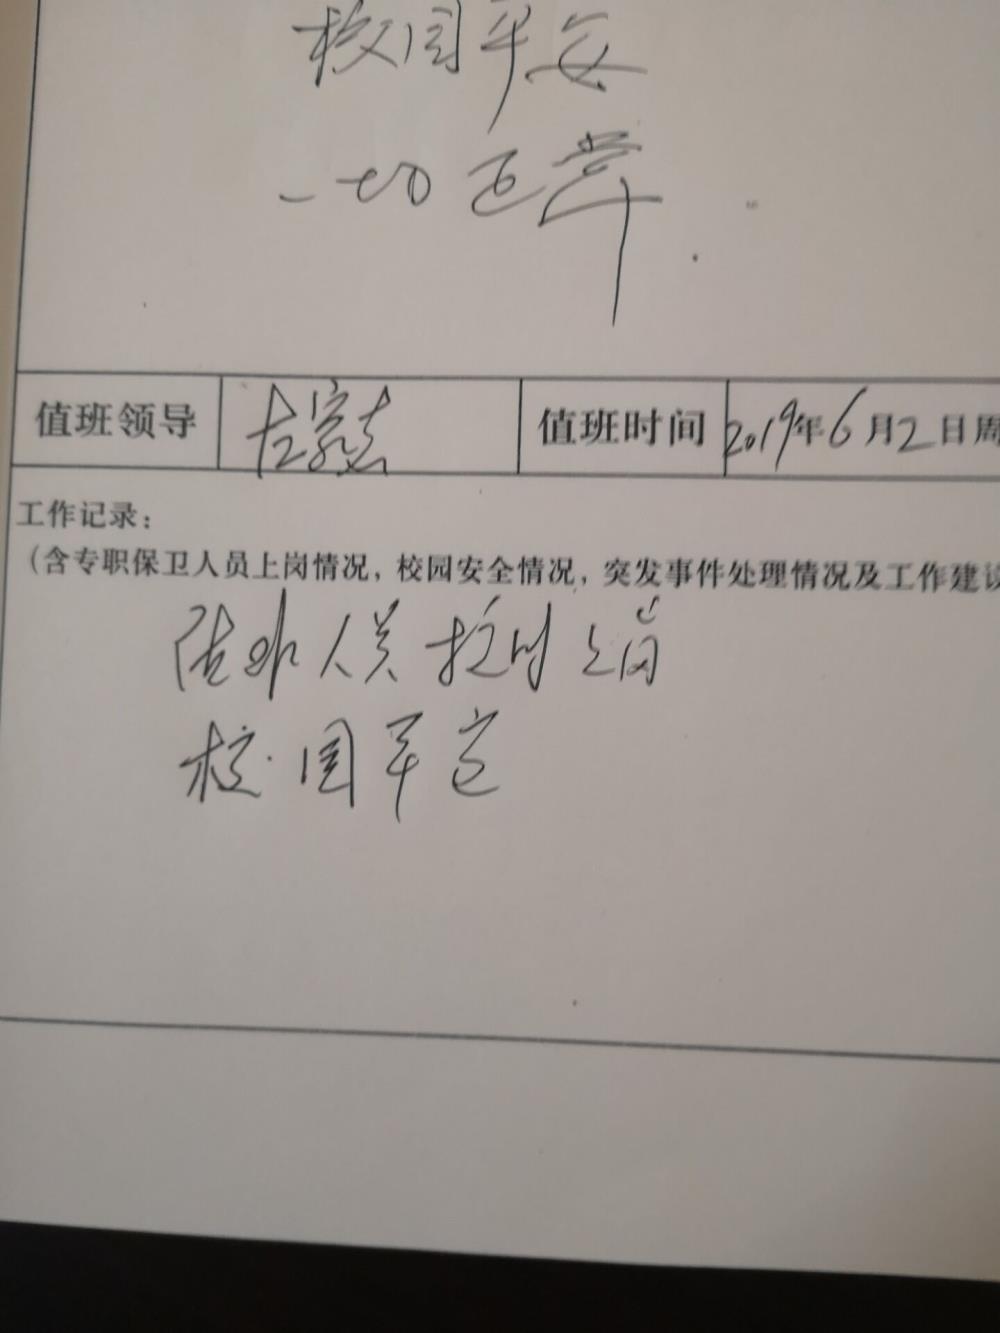 校园平安
一切正常.
值班领导 左家志 值班时间 2019年6月2日周
工作记录：
（含专职保卫人员上岗情况，校园安全情况，突发事件处理情况及工作建议
保卫人员按时上岗
校园平安